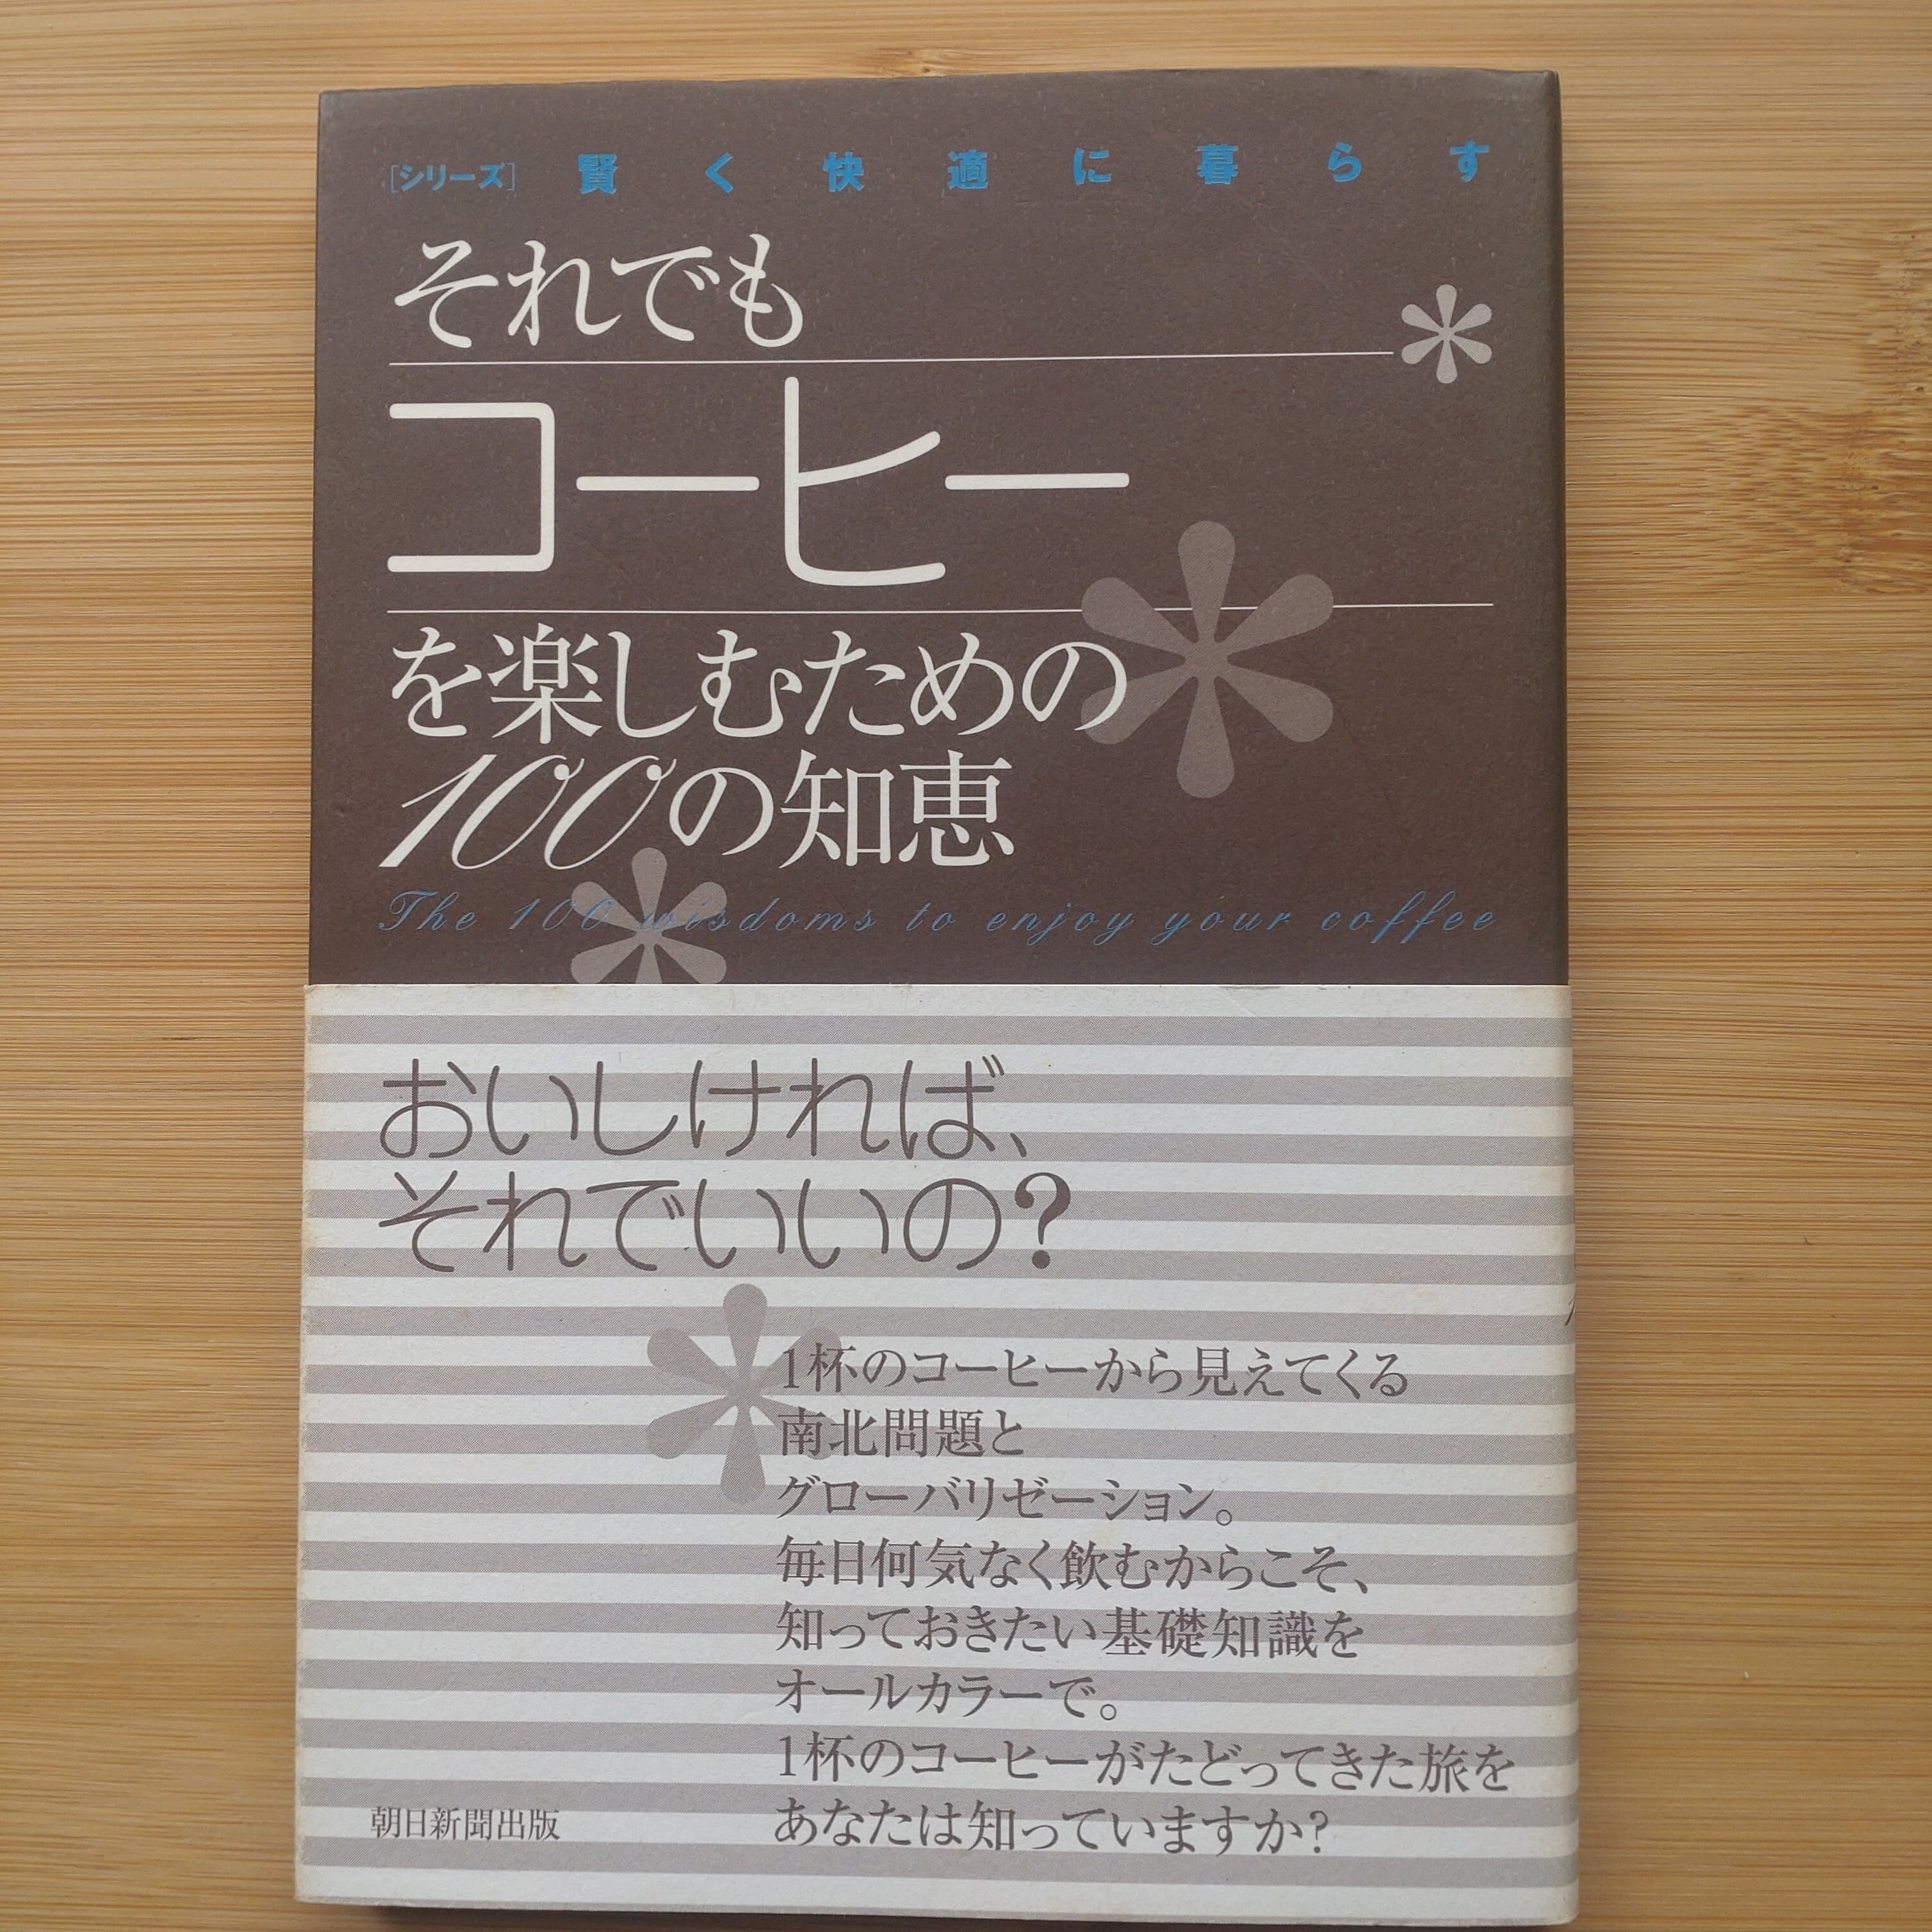 [シリーズ] 賢く快適に暮らす
それでも
コーヒー
を楽しむための
100の知恵
The 100 wisdoms to enjoy your coffee
おいしければ、
それでいいの?
1杯のコーヒーから見えてくる
南北問題と
グローバリゼーション。
毎日何気なく飲むからこそ、
知っておきたい基礎知識を
オールカラーで。
1杯のコーヒーがたどってきた旅を
あなたは知っていますか?
朝日新聞出版